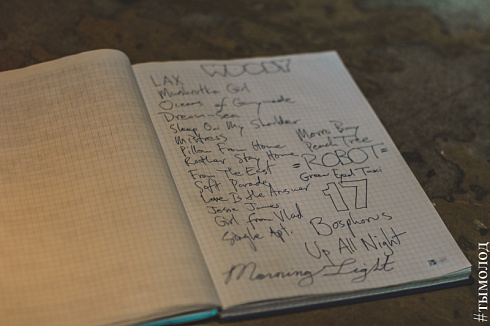 WOODY
LAX
Muskratka Girl
Oceans of Ganymede
Dream-Sea
Sleep On My Shoulder
Mistress
Pillow From Home
Rather Stay Home
From The East
Soft Parade
Love Is the Answer
Jesse James
Girl from Vlad
Single Apt.
Morro Bay
Peach Tree
=ROBOT=
Green Eyed Taxi
17
Bosphorus
Up All Night
Morning Light
#тымолод